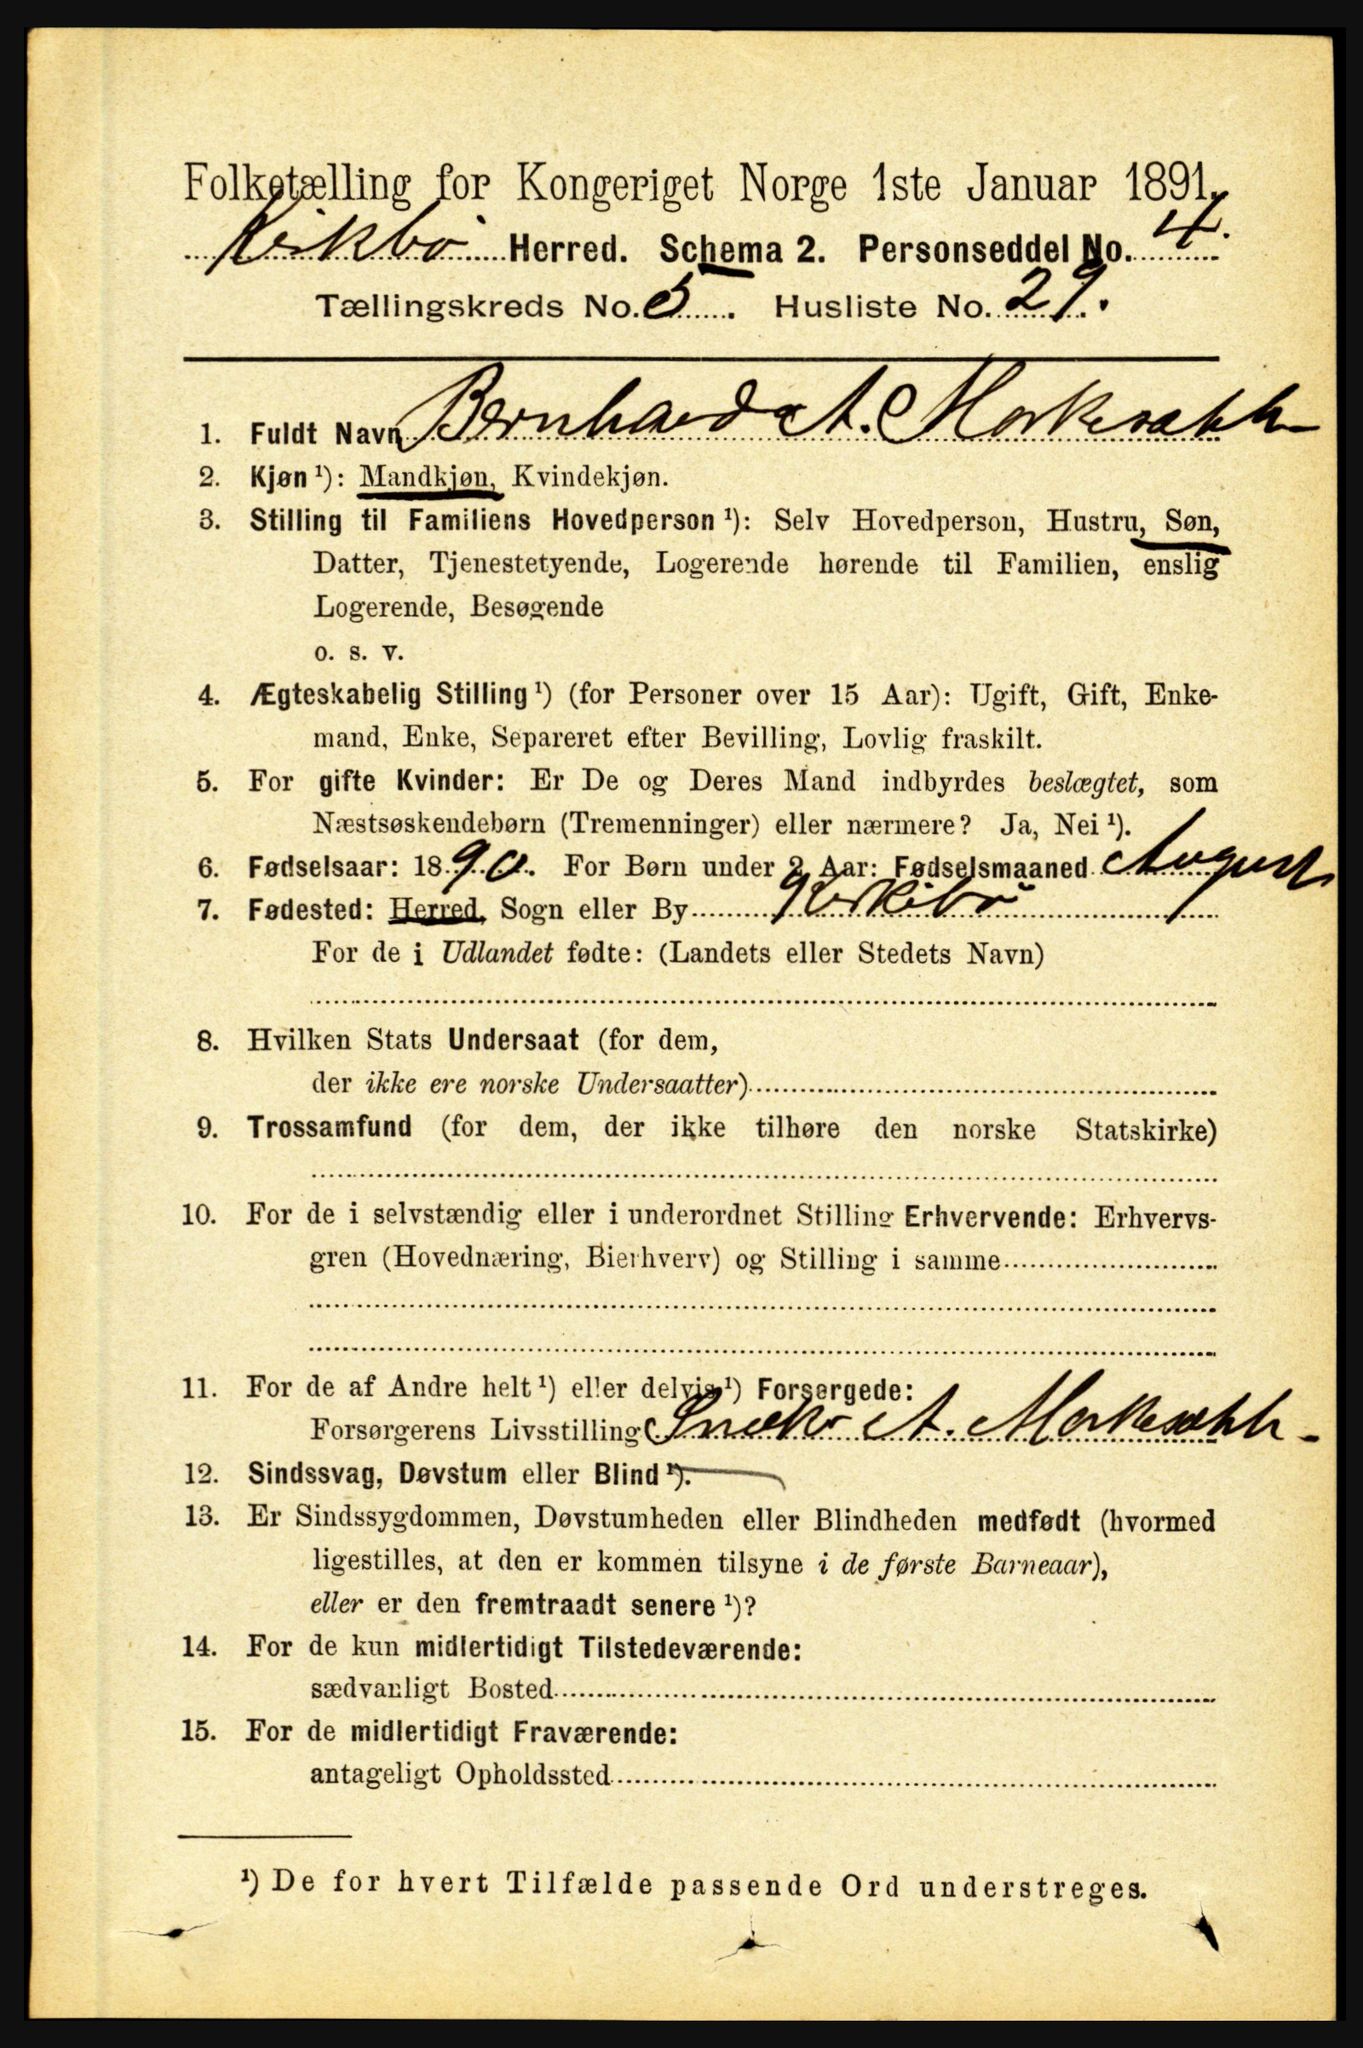 Folketælling for Kongeriget Norge 1ste Januar 1891.
Kirkbø Herred. Schema 2. Personseddel No. 4.
Tællingskreds No. 5. Husliste No. 29.
1. Fuldt Navn Bernhard A. Morkesæth
2. Kjøn ¹): Mandkjøn, Kvindekjøn.
3. Stilling til Familiens Hovedperson ¹): Selv Hovedperson, Hustru, Søn,
Datter, Tjenestetyende, Logerende hørende til Familien, enslig
Logerende, Besøgende
o. s. v.
4. Ægteskabelig Stilling ¹) (for Personer over 15 Aar): Ugift, Gift, Enke-
mand, Enke, Separeret efter Bevilling, Lovlig fraskilt.
5. For gifte Kvinder: Er De og Deres Mand indbyrdes beslægtet, som
Næstsøskendebørn (Tremenninger) eller nærmere? Ja, Nei ¹).
6. Fødselsaar: 1890. For Børn under 2 Aar: Fødselsmaaned August
7. Fødested: Herred, Sogn eller By Kirkibø
For de i Udlandet fødte: (Landets eller Stedets Navn)
8. Hvilken Stats Undersaat (for dem,
der ikke ere norske Undersaatter)
9. Trossamfund (for dem, der ikke tilhøre den norske Statskirke)
10. For de i selvstændig eller i underordnet Stilling Erhvervende: Erhvervs-
gren (Hovednæring, Bierhverv) og Stilling i samme
11. For de af Andre helt ¹) eller delvis ¹) Forsørgede:
Forsørgerens Livsstilling A. Morkesæth
12. Sindssvag, Døvstum eller Blind ¹).
13. Er Sindssygdommen, Døvstumheden eller Blindheden medfødt (hvormed
ligestilles, at den er kommen tilsyne i de første Barneaar),
eller er den fremtraadt senere ¹)?
14. For de kun midlertidigt Tilstedeværende:
sædvanligt Bosted
15. For de midlertidigt Fraværende:
antageligt Opholdssted
¹) De for hvert Tilfælde passende Ord understreges.